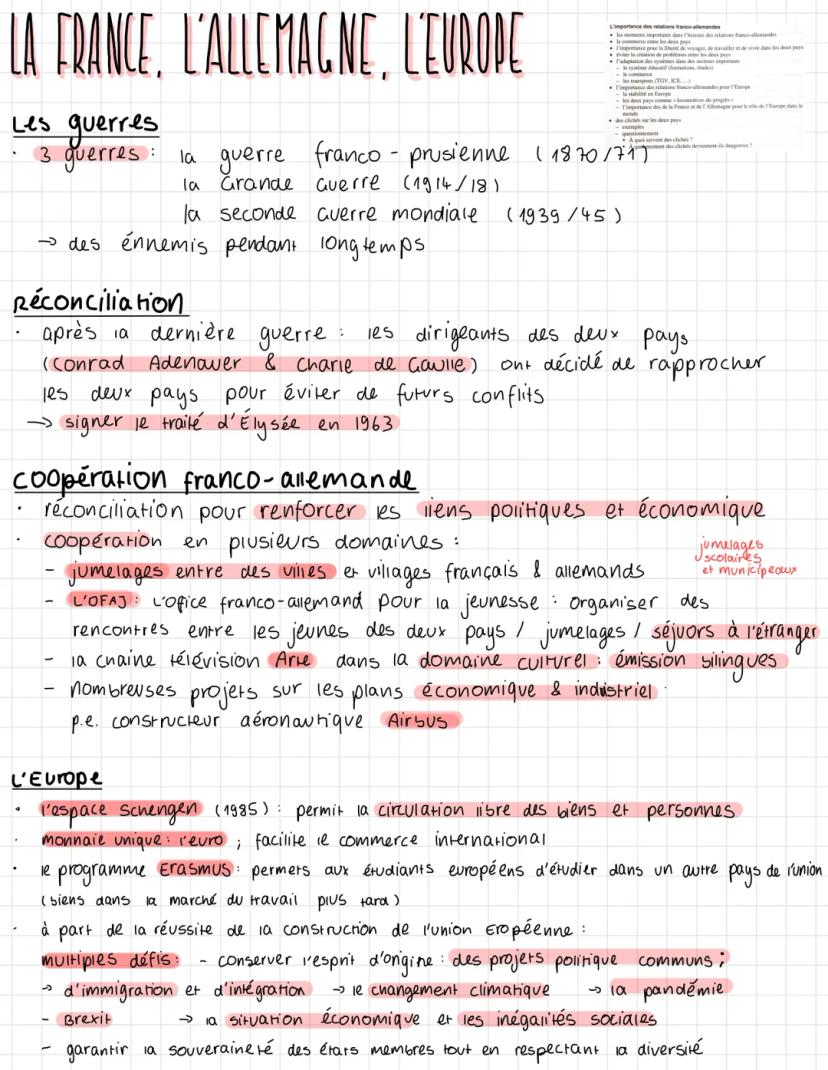 LA FRANCE, L'ALLEMAGNE, L'EUROPE
L'importance des relations franco-allemandes
• les moments importants dans l'histoire des relations franco-allemandes
• le commerce entre les deux pays
• l'importance pour la liberté de voyager, de travailler et de vivre dans les deux pays
• éviter la création de problèmes entre les deux pays
• l'adaptation des systèmes dans des secteurs importants
– le système éducatif (formations, études)
– le commerce
– les transports (TGV, ICE, ...)
• l'importance des relations franco-allemandes pour l'Europe
– la stabilité en Europe
– les deux pays comme « locomotives du progrès »
– l'importance des de la France et de l'Allemagne pour le rôle de l'Europe dans le
monde
• des clichés sur les deux pays
– exemples
– questionnement
• À quoi servent des clichés ?
• À quel moment des clichés deviennent-ils dangereux ?
Les guerres
· 3 guerres : la guerre franco-prusienne (1870/71)
la Grande Guerre (1914/18)
la seconde Guerre mondiale (1939/45)
→ des énnemis pendant longtemps
Réconciliation
· après la dernière guerre : les dirigeants des deux pays
(Conrad Adenauer & Charle de Gaulle) ont décidé de rapprocher
les deux pays pour éviter de futurs conflits
→ signer le traité d'Élysée en 1963
coopération franco-allemande
· réconciliation pour renforcer les liens politiques et économique
· coopération en plusieurs domaines :
jumelages
scolaires
et municipeaux
- jumelages entre des villes et villages français & allemands
- L'OFAJ : L'ofice franco-allemand pour la jeunesse : organiser des
rencontres entre les jeunes des deux pays / jumelages / séjuors à l'étranger
- la chaîne télévision Arte dans la domaine culturel : émission bilingues
- nombreuses projets sur les plans économique & industriel
p.e. constructeur aéronautique Airbus
L'Europe
· l'espace Schengen (1985) : permit la circulation libre des biens et personnes
· monnaie unique : l'euro ; facilite le commerce international
· le programme Erasmus : permets aux étudiants européens d'étudier dans un autre pays de l'union
(biens dans la marché du travail plus tard)
· à part de la réussite de la construction de l'union Eropéenne :
multiples défis : - conserver l'esprit d'origine : des projets politique communs ;
→ d'immigration et d'intégration → le changement climatique → la pandémie
- Brexit → la situation économique et les inégalités sociales
- garantir la souveraineté des états membres tout en respectant la diversité